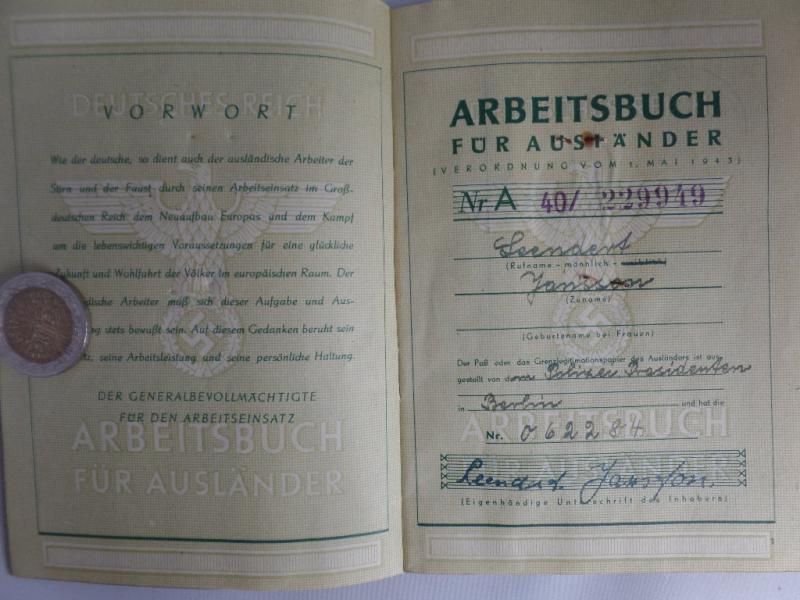 DEUTSCHES REICH
VORWORT
Wie der deutsche, so dient auch der ausländische Arbeiter der
Stirn und der Faust durch seinen Arbeitseinsatz im Groß-
deutschen Reich dem Neuaufbau Europas und dem Kampf
um die lebenswichtigen Voraussetzungen für eine glückliche
Zukunft und Wohlfahrt der Völker im europäischen Raum. Der
dische Arbeiter muß sich dieser Aufgabe und Aus-
g stets bewußt sein. Auf diesem Gedanken beruht sein
tz, seine Arbeitsleistung und seine persönliche Haltung.
DER GENERALBEVOLLMÄCHTIGTE
FÜR DEN ARBEITSEINSATZ
ARBEITSBUCH
FÜR AUSLÄNDER
ARBEITSBUCH
FÜR AUSLÄNDER
(VERORDNUNG VOM 1. MAI 1943)
Nr. A 40/ 229949
Leendert
(Rufname - männlich - weiblich)
Jansson
(Zuname)
(Geburtsname bei Frauen)
Der Paß oder das Grenzlegitimationspapier des Ausländers ist aus-
gestellt von dem Polizei Presidenten
in Berlin und hat die
Nr. 062284
ARBEITSBUCH
FÜR AUSLÄNDER
Leendert Jansson
(Eigenhändige Unterschrift des Inhabers)
1